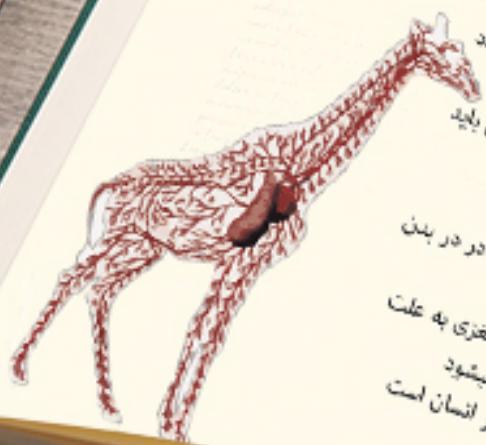 د
باید
در در بدن
غزی به علت
میشود
انسان است